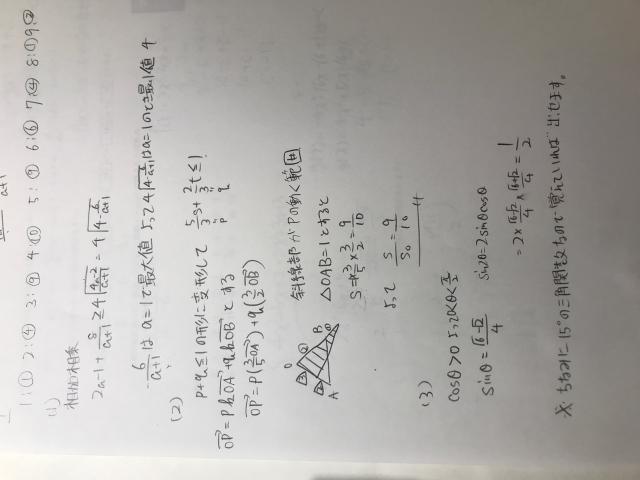 1:① 2:④ 3:⑦ 4:⑩ 5:⑦ 6:⑥ 7:④ 8:① 9:②
(1)
相加相乗
2a-1+8/(a+1) ≧ 4√
はa=1で最大値 よって はa=1のとき最小値 4
(2)
p+q≦1の形に変形して 5/3 s + 2/3 t ≦ 1
p q
OP = pkOA + qkOB とする
OP = p(3/5 OA) + q(3/2 OB)
斜線部がPの動く範囲
O
B
A
△OAB=1とすると
S = 1×3/5×3/2 = 9/10
よって S/S0 = 9/10
(3)
cosθ>0 より 0<θ<π/2
sinθ = (√6-√2)/4
sin2θ=2sinθcosθ
=2×(√6-√2)/4×(√6+√2)/4=1/2
※ ちなみに15°の三角関数なので覚えていれば出せます。